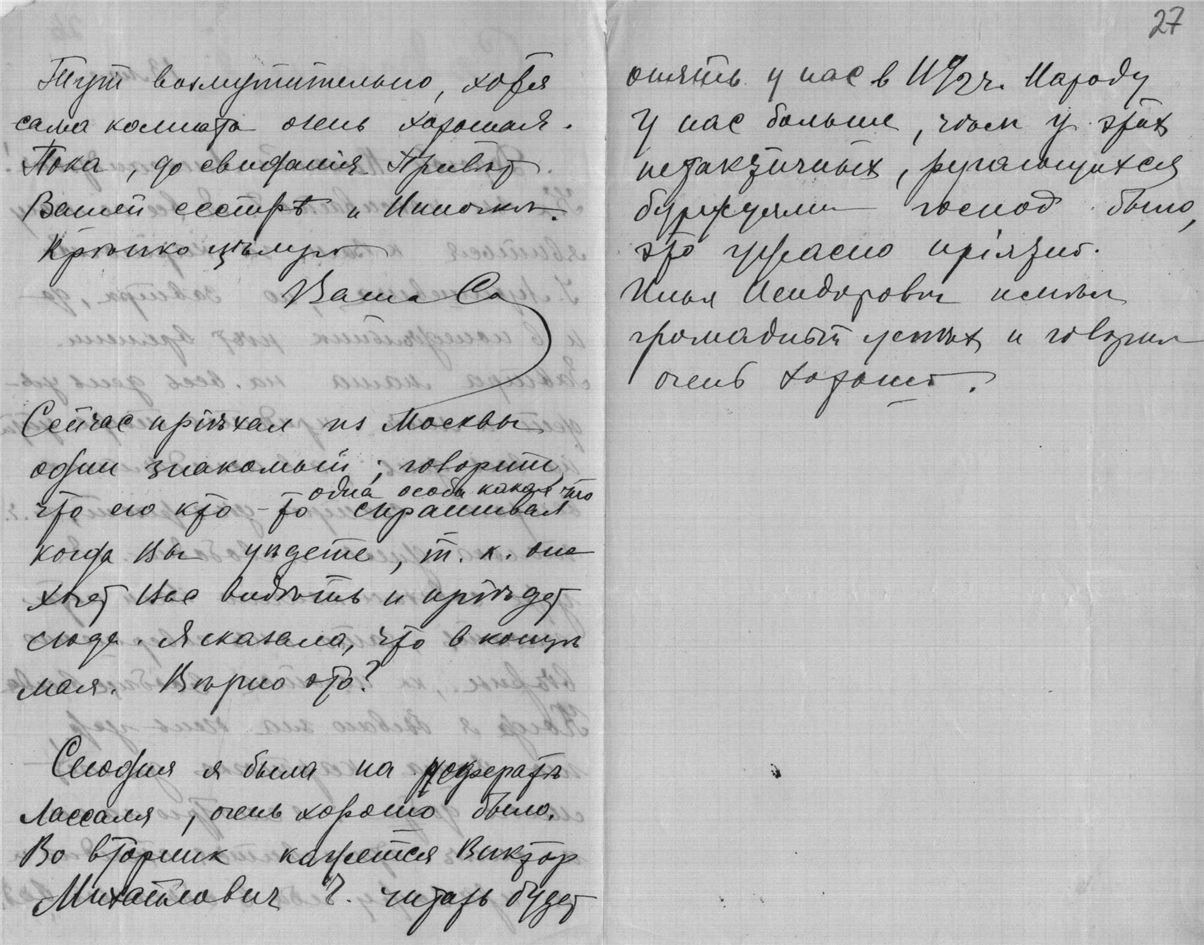 Тут возмутительно, хотя
сама комната очень хорошая.
Пока, до свиданія. Привѣт
Вашей сестрѣ и Ниночке.
Крѣпко цѣлую
Ваша Са
Сейчас пріѣхал из Москвы
один знакомый; говорит,
одна особа какая то
что его кто-то спрашивал
когда Вы уѣдете, т. к. она
хочет Вас видѣть и пріѣдет
сюда. Я сказала, что в концѣ
мая. Вѣрно это?
Сегодня я была на рефератѣ
Лассаля, очень хорошо было.
Во вторник кажется Виктор
Михайлович Ч. читать будет
27
опять у нас в 11 1/2 ч. Народу
у нас больше, чѣм у этих
нетактичных, ругающихся
буржуями господ было,
это ужасно пріятно.
Илья Исидорович имѣл
громадный успѣх и говорил
очень хорошо.